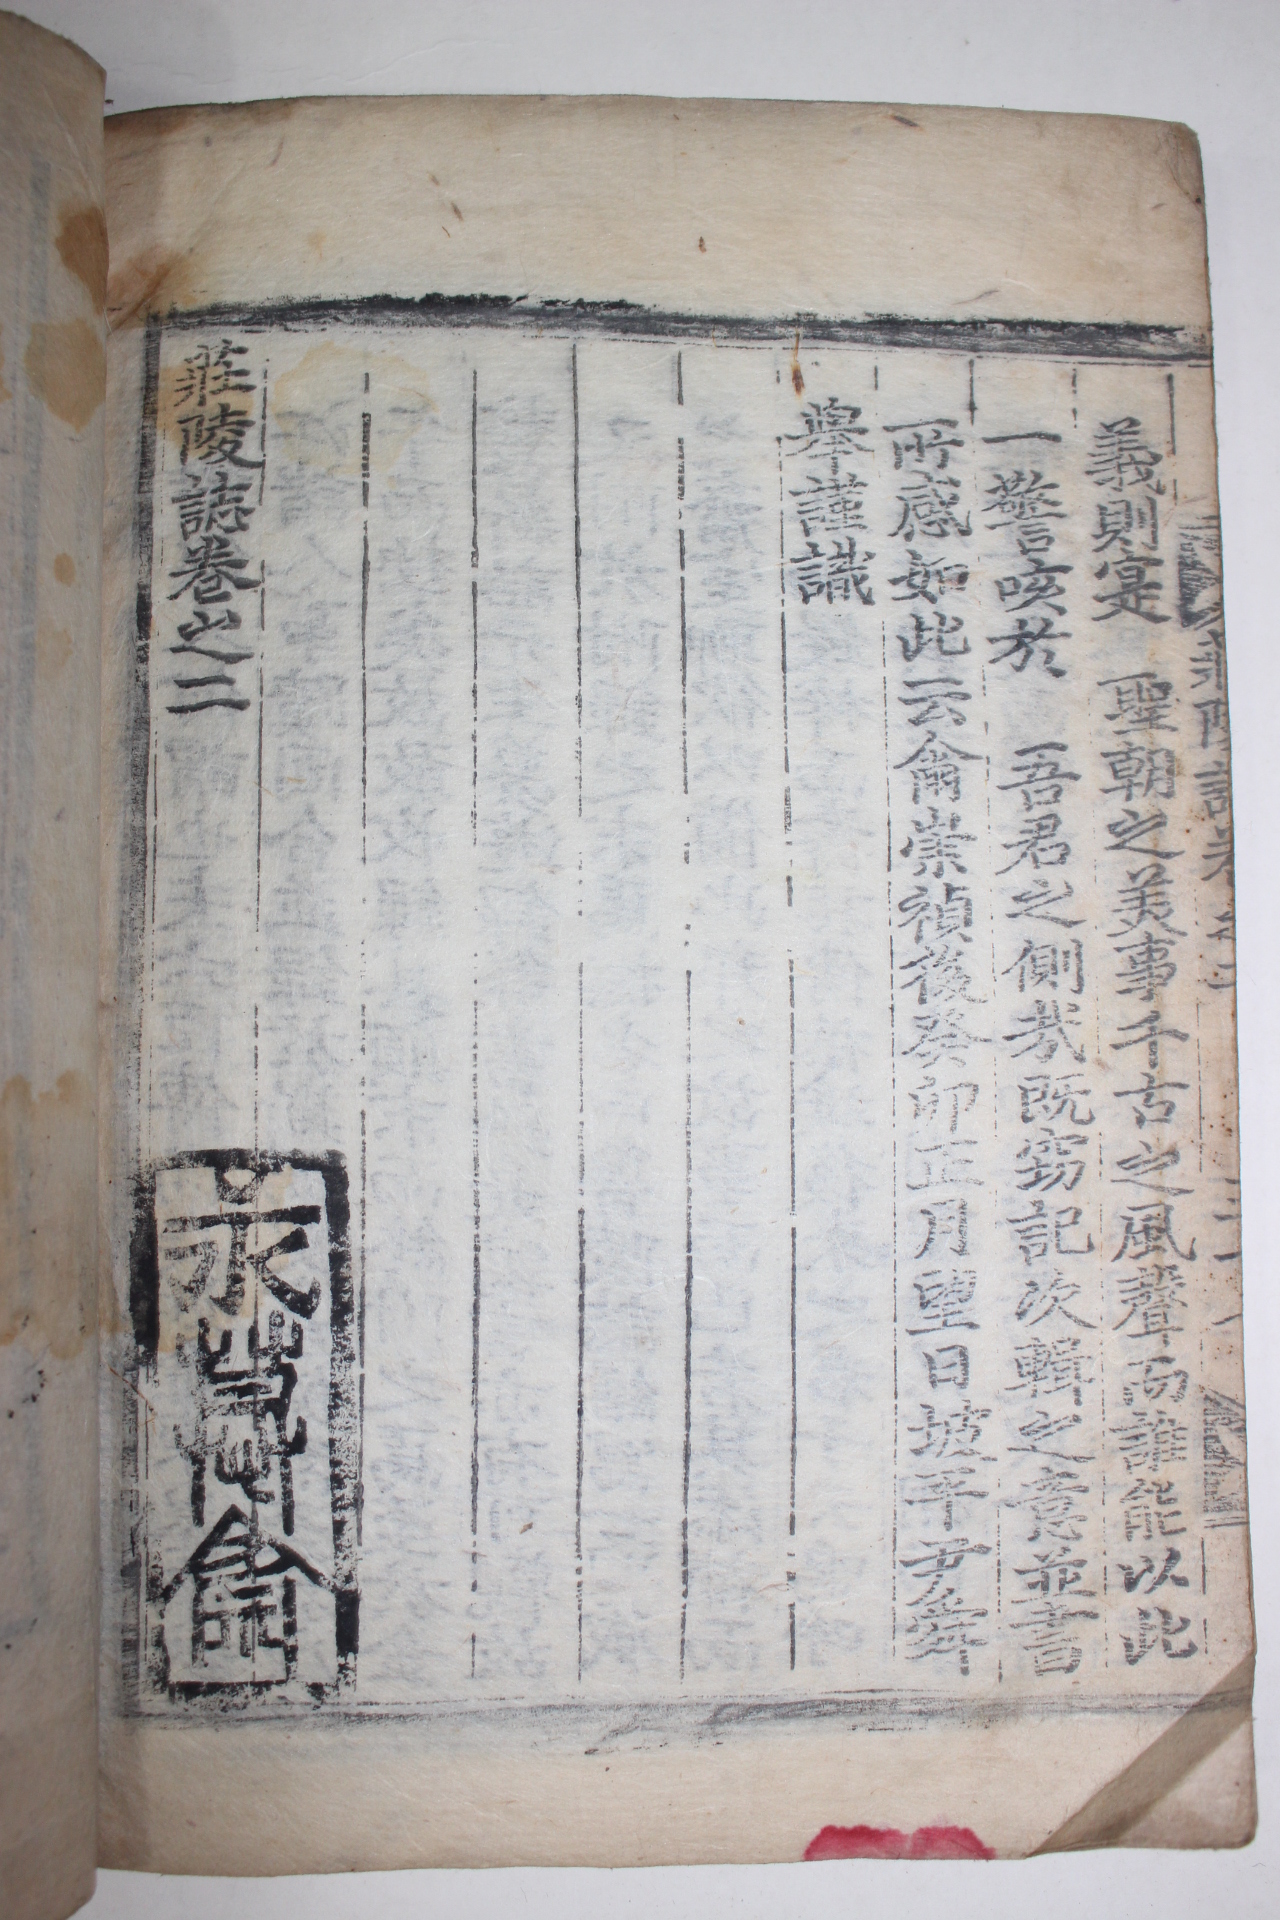 義則寔　聖朝之美事千古之風聲而誰能以此
一警咳於　吾君之側哉旣竊記次輯之意並書
所感如此云爾崇禎後癸卯正月望日坡平尹舜
擧謹識
莊陵誌卷之二